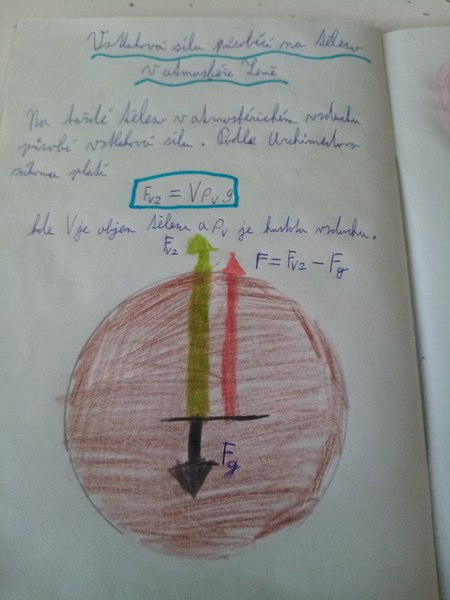 Vztlaková síla působící na těleso
v atmosféře Země
Na každé těleso v atmosférickém vzduchu
působí vztlaková síla. Podle Archimedova
zákona platí
Fvz = Vρv g
kde V je objem tělesa a ρv je hustota vzduchu.
Fvz
F = Fvz - Fg
Fg